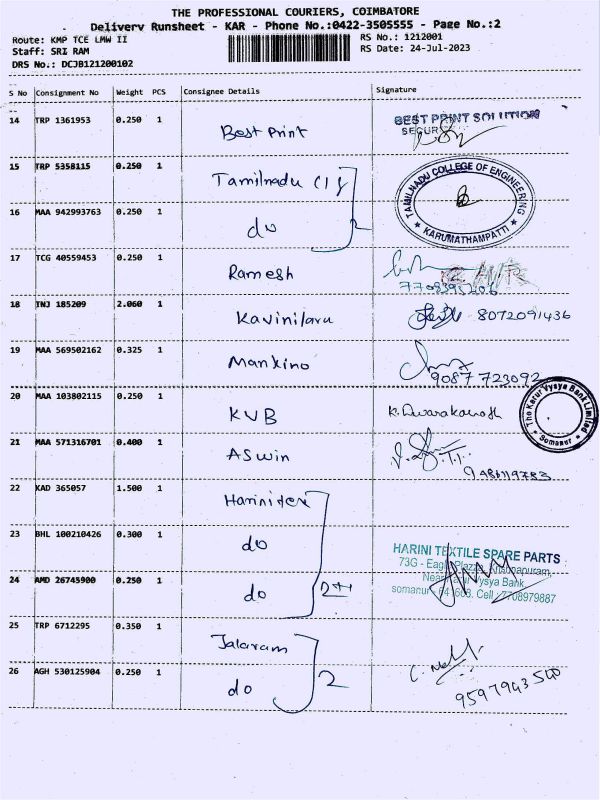 THE PROFESSIONAL COURIERS, COIMBATORE
Delivery Runsheet - KAR - Phone No.:0422-3505555 - Page No.:2
Route: KMP TCE LMW II
RS No.: 1212001
Staff: SRI RAM
RS Date: 24-Jul-2023
DRS No.: DCJB121200102
S No Consignment No Weight PCS Consignee Details Signature
14 TRP 1361953 0.250 1 Best Print
BEST PRINT SOLUTION
SECUR
15 TRP 5358115 0.250 1 Tamilnadu Clg
TAMILNADU COLLEGE OF ENGINEERING
KARUMATHAMPATTI
16 MAA 942993763 0.250 1 do
2
17 TCG 40559453 0.250 1 Ramesh
18 TNJ 185209 2.060 1 Kavinilavu 8072091436
19 MAA 569502162 0.325 1 Mankino
9087 723092
20 MAA 103802115 0.250 1 KVB
The Karur Vysya Bank Limited
Somanur
21 MAA 571316701 0.400 1 Aswin
22 KAD 365057 1.500 1
23 BHL 100210426 0.300 1 do
HARINI TEXTILE SPARE PARTS
73G - Eagle Plazza,
Near Karur Vysya Bank
somanur - 641668. Cell: 7708979887
24 AMD 26745900 0.250 1 do
25 TRP 6712295 0.350 1 Jalaram
26 AGH 530125904 0.250 1 do 2